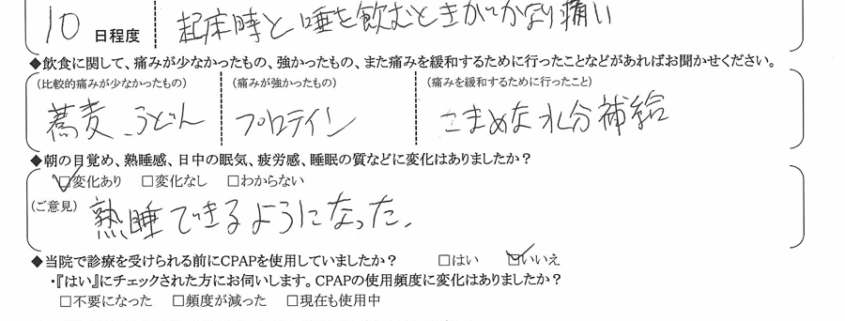 10 日程度 起床時と唾を飲むときがかなり痛い
◆飲食に関して、痛みが少なかったもの、強かったもの、また痛みを緩和するために行ったことなどがあればお聞かせください。
(比較的痛みが少なかったもの) (痛みが強かったもの) (痛みを緩和するために行ったこと)
蕎麦、うどん プロテイン こまめな水分補給
◆朝の目覚め、熟睡感、日中の眠気、疲労感、睡眠の質などに変化はありましたか?
☑変化あり □変化なし □わからない
(ご意見) 熟睡できるようになった.
◆当院で診療を受けられる前にCPAPを使用していましたか? □はい ☑いいえ
・『はい』にチェックされた方にお伺いします。CPAPの使用頻度に変化はありましたか?
□不要になった □頻度が減った □現在も使用中